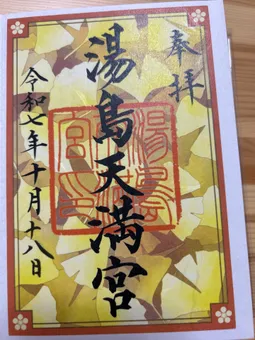 奉拝
湯島天満宮
令和七年十月十八日